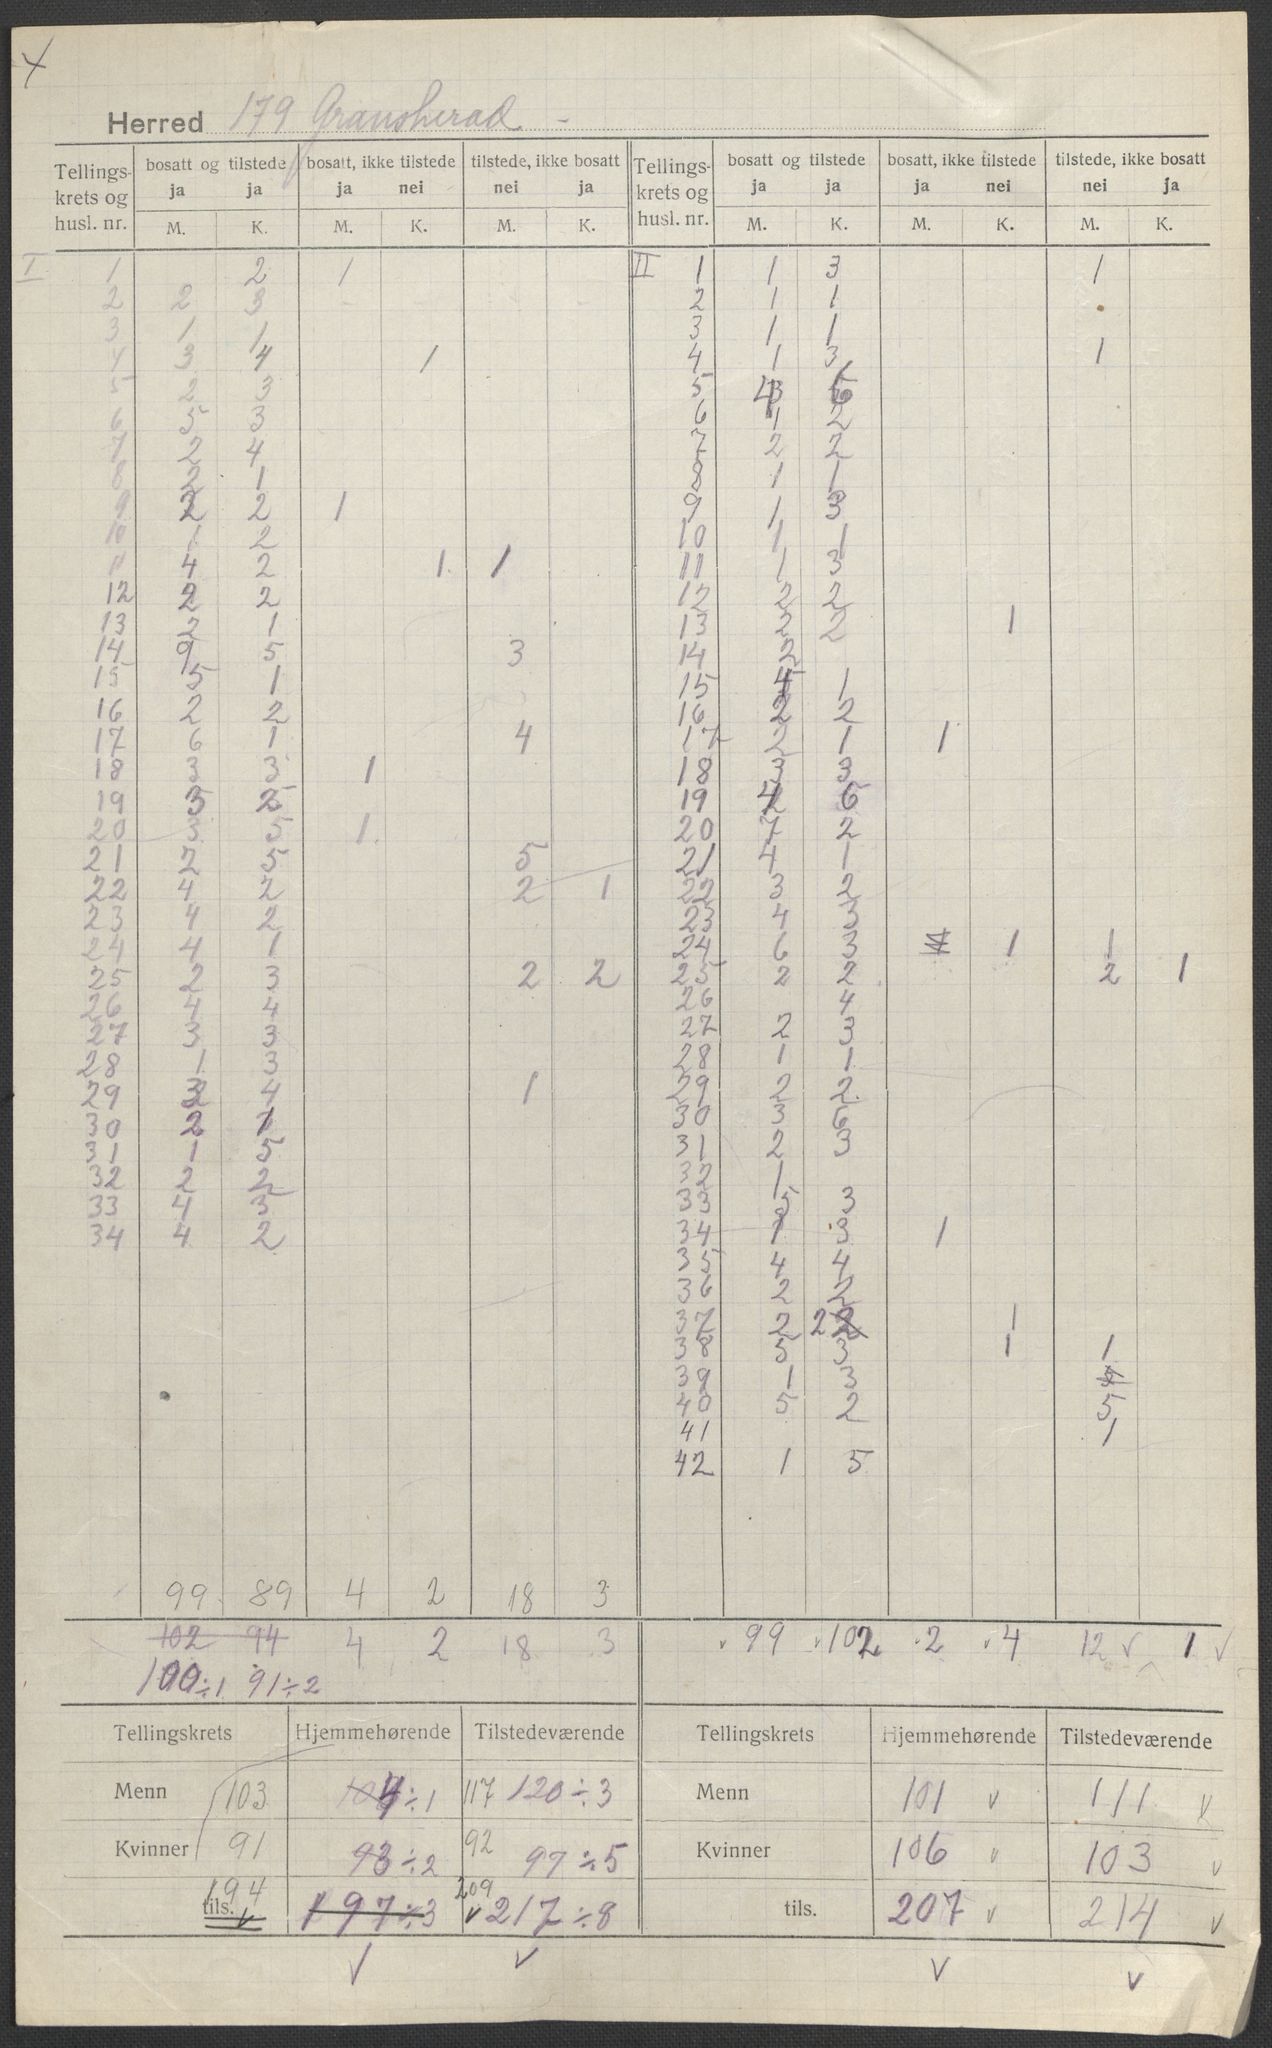 X
Herred 179 Gransherad -
Tellingskrets og husl. nr. | bosatt og tilstede ja ja | bosatt, ikke tilstede ja nei | tilstede, ikke bosatt nei ja | Tellingskrets og husl. nr. | bosatt og tilstede ja ja | bosatt, ikke tilstede ja nei | tilstede, ikke bosatt nei ja
M. K. M. K. M. K. M. K. M. K. M. K.
I 1 | | 2 | 1 | | | | II 1 | 1 | 3 | | | 1 |
2 | 2 | 3 | | | | | 2 | 1 | 1 | | | |
3 | 1 | 1 | | | | | 3 | 1 | 1 | | | |
4 | 3 | 4 | | 1 | | | 4 | 1 | 3 | | | 1 |
5 | 2 | 3 | | | | | 5 | | | | | |
6 | 5 | 3 | | | | | 6 | 1 | 2 | | | |
7 | 2 | 4 | | | | | 7 | 2 | 2 | | | |
8 | 2 | 1 | | | | | 8 | 1 | 1 | | | |
9 | 2 | 2 | 1 | | | | 9 | 1 | 3 | | | |
10 | 1 | 2 | | | | | 10 | 1 | 1 | | | |
11 | 4 | 2 | | 1 | 1 | | 11 | 1 | 3 | | | |
12 | 2 | 2 | | | | | 12 | 2 | 2 | | | |
13 | 2 | 1 | | | | | 13 | 2 | 2 | | 1 | |
14 | 9 | 5 | | | 3 | | 14 | 2 | | | | |
15 | 5 | 1 | | | | | 15 | 4 | 1 | | | |
16 | 2 | 2 | | | | | 16 | 2 | 2 | | | |
17 | 6 | 1 | | | 4 | | 17 | 2 | 1 | 1 | | |
18 | 3 | 3 | 1 | | | | 18 | 3 | 3 | | | |
19 | 3 | 2 | | | | | 19 | 4 | 6 | | | |
20 | 3 | 5 | 1 | | | | 20 | 7 | 2 | | | |
21 | 2 | 5 | | | 5 | | 21 | 4 | 1 | | | |
22 | 4 | 2 | | | 2 | 1 | 22 | 3 | 2 | | | |
23 | 4 | 2 | | | | | 23 | 4 | 3 | | | |
24 | 4 | 1 | | | | | 24 | 6 | 3 | | 1 | 1 |
25 | 2 | 3 | | | 2 | 2 | 25 | 2 | 2 | | | 2 | 1
26 | 4 | 4 | | | | | 26 | | 4 | | | |
27 | 3 | 3 | | | | | 27 | 2 | 3 | | | |
28 | 1 | 3 | | | | | 28 | 1 | 1 | | | |
29 | 3 | 4 | | | 1 | | 29 | 2 | 2 | | | |
30 | 2 | 1 | | | | | 30 | 3 | 6 | | | |
31 | 1 | 5 | | | | | 31 | 2 | 3 | | | |
32 | 2 | 2 | | | | | 32 | 1 | | | | |
33 | 4 | 3 | | | | | 33 | 5 | 3 | | | |
34 | 4 | 2 | | | | | 34 | 1 | 3 | 1 | | |
35 | 4 | 4
36 | 2 | 2
37 | 2 | 2 | | 1
38 | 5 | 3 | | 1 | 1
39 | 1 | 3
40 | 5 | 2 | | | 5
41 | | | | | 1
42 | 1 | 5
99 89 4 2 18 3
102 94 4 2 18 3 | 99 102 2 4 12 1
100÷1 91÷2
Tellingskrets | Hjemmehørende | Tilstedeværende | Tellingskrets | Hjemmehørende | Tilstedeværende
Menn 103 | 104÷1 | 117 120÷3 | Menn | 101 | 111
Kvinner 91 | 93÷2 | 92 97÷5 | Kvinner | 106 | 103
tils. 194 | 197÷3 | 209 217÷8 | tils. | 207 | 214